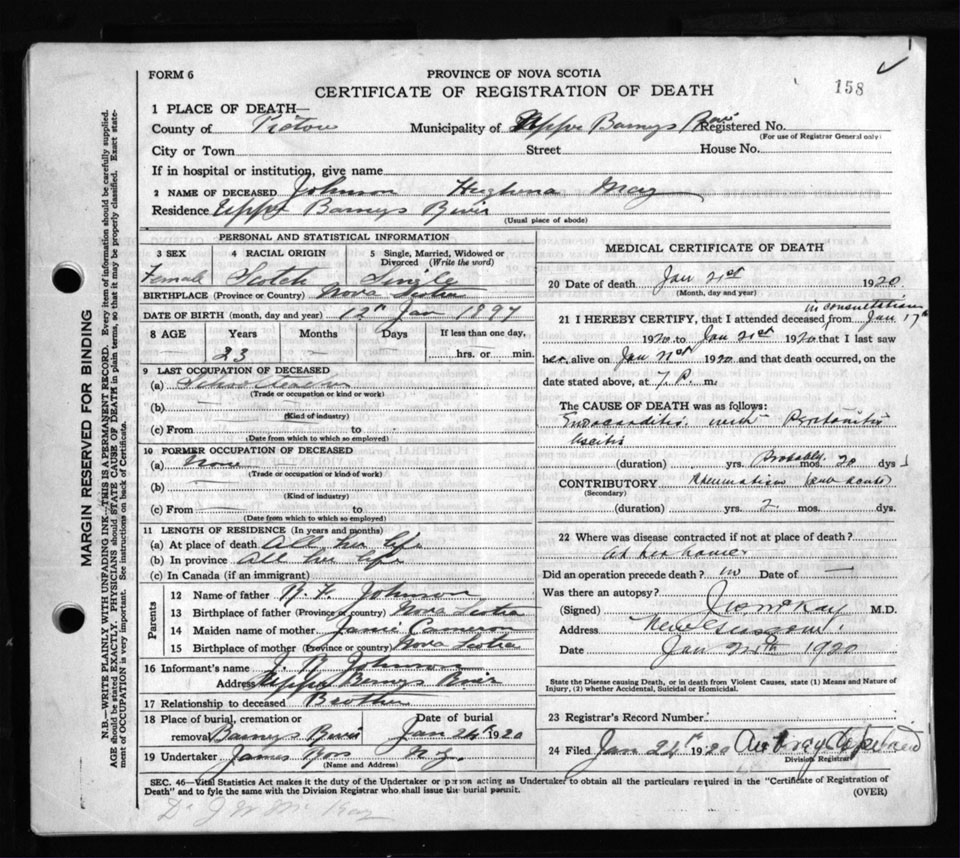 FORM 6
PROVINCE OF NOVA SCOTIA
CERTIFICATE OF REGISTRATION OF DEATH
158
1 PLACE OF DEATH—
County of Pictou Municipality of Upper Barneys River Registered No.
(For use of Registrar General only)
City or Town Street House No.
If in hospital or institution, give name
2 NAME OF DECEASED Johnson Hughena May
Residence Upper Barneys River
(Usual place of abode)
PERSONAL AND STATISTICAL INFORMATION
3 SEX 4 RACIAL ORIGIN 5 Single, Married, Widowed or Divorced (Write the word)
Female Scotch Single
BIRTHPLACE (Province or Country) Nova Scotia
DATE OF BIRTH (month, day and year) 12th Jan 1897
8 AGE Years Months Days If less than one day,
23 — — hrs. or min.
9 LAST OCCUPATION OF DECEASED
(a) School teacher
(Trade or occupation or kind or work)
(b)
(Kind of industry)
(c) From to
(Date from which to which so employed)
10 FORMER OCCUPATION OF DECEASED
(a) None
(Trade or occupation or kind of work)
(b)
(Kind of industry)
(c) From to
(Date from which to which so employed)
11 LENGTH OF RESIDENCE (In years and months)
(a) At place of death All her life
(b) In province All her life
(c) In Canada (if an immigrant)
Parents
12 Name of father Johnson
13 Birthplace of father (Province or country) Nova Scotia
14 Maiden name of mother Cameron
15 Birthplace of mother (Province or country) Nova Scotia
16 Informant's name Johnson
Address Upper Barneys River
17 Relationship to deceased Brother
18 Place of burial, cremation or removal Barneys River Date of burial Jan 24th 1920
19 Undertaker James
(Name and Address)
MEDICAL CERTIFICATE OF DEATH
20 Date of death Jan 21st 1920
(Month, day and year)
in consultation
21 I HEREBY CERTIFY, that I attended deceased from Jan 17th
1920 to Jan 21st 1920 that I last saw
her alive on Jan 21st 1920 and that death occurred, on the
date stated above, at 7 P. m.
The CAUSE OF DEATH was as follows:
Endocarditis with Peritonitis
Ascitis
(duration) yrs. Probably mos. 20 dys
CONTRIBUTORY Rheumatism (sub acute)
(Secondary)
(duration) yrs. 2 mos. dys.
22 Where was disease contracted if not at place of death?
at her home
Did an operation precede death? no Date of —
Was there an autopsy?
(Signed) McKay M.D.
Address New Glasgow
Date Jan 1920
State the Disease causing Death, or in death from Violent Causes, state (1) Means and Nature of Injury, (2) whether Accidental, Suicidal or Homicidal.
23 Registrar's Record Number
24 Filed Jan 24th 1920 Aubrey
Division Registrar
SEC. 46—Vital Statistics Act makes it the duty of the Undertaker or person acting as Undertaker to obtain all the particulars required in the "Certificate of Registration of
Death" and to fyle the same with the Division Registrar who shall issue the burial permit. (OVER)
Dr J W McKay
MARGIN RESERVED FOR BINDING
N.B.—WRITE PLAINLY WITH UNFADING INK—THIS IS A PERMANENT RECORD. Every item of information should be carefully supplied.
AGE should be stated EXACTLY. PHYSICIANS should STATE CAUSE OF DEATH in plain terms, so that it may be properly classified. Exact state-
ment of OCCUPATION is very important. See instructions on back of Certificate.